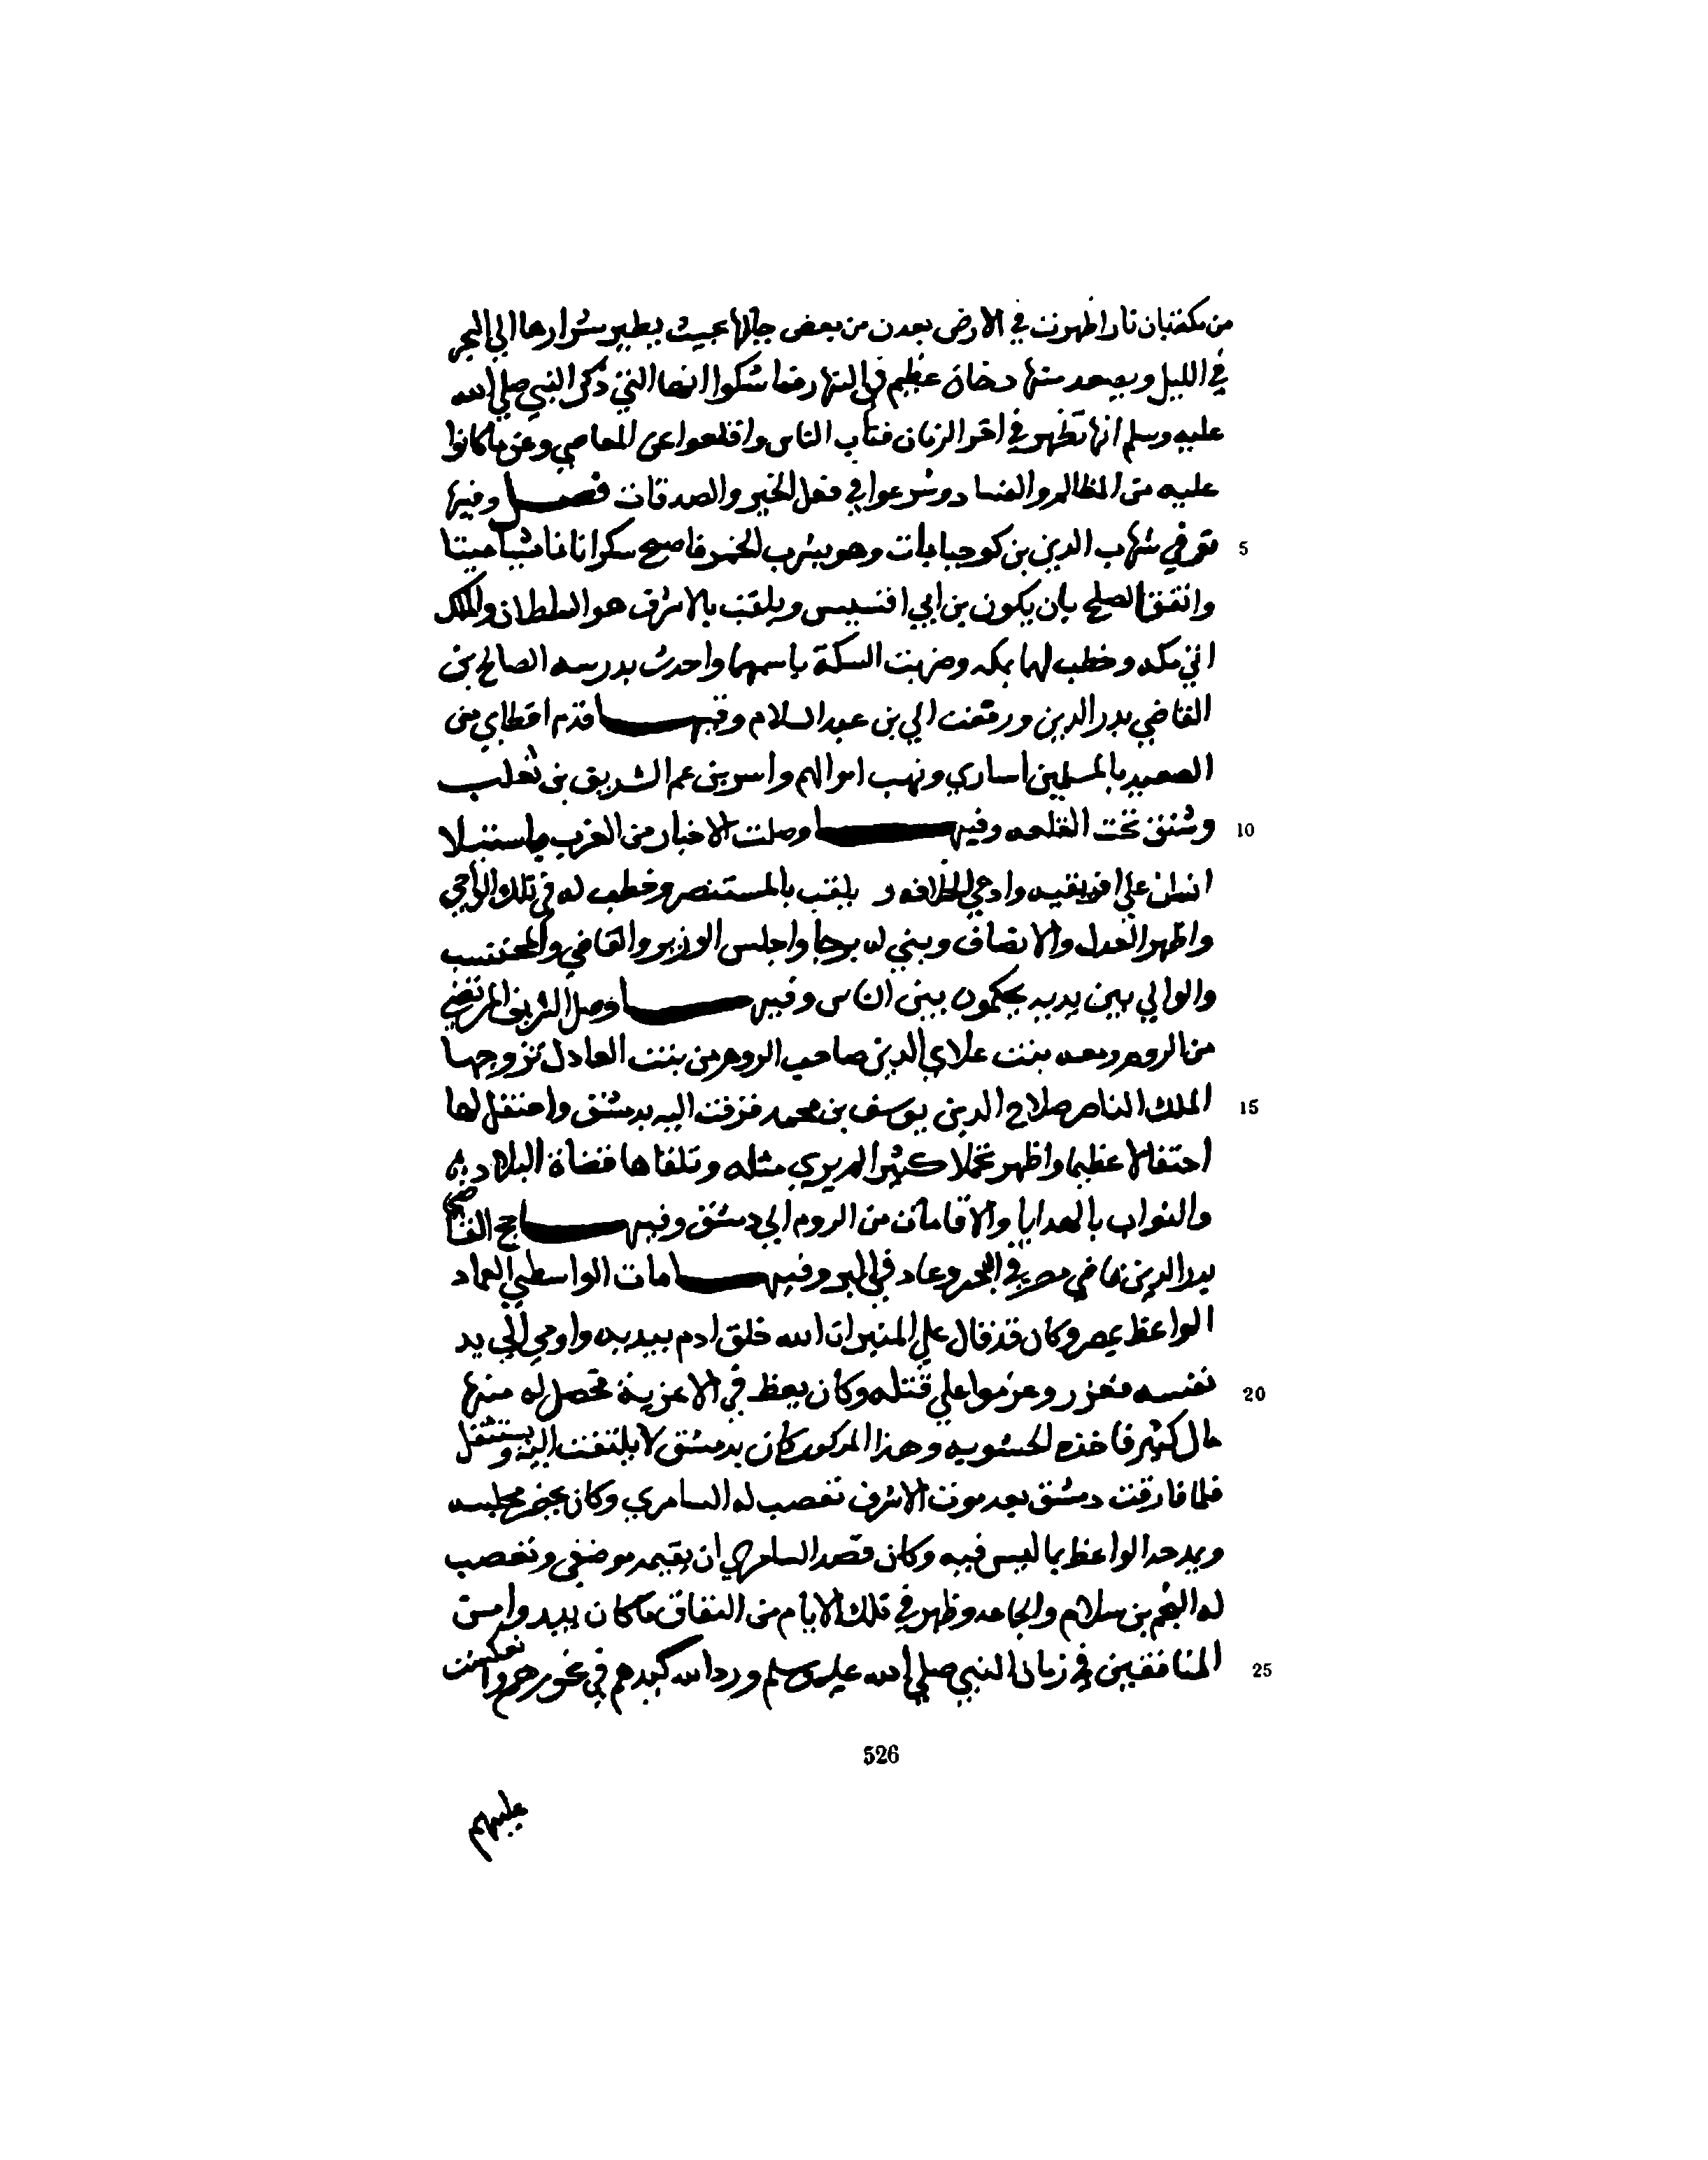 من مكه بان نارا ظهرت في الارض بعدن من بعض جبالها بحيث يطير شرارها الي البحر
في الليل ويصعد منها دخان عظيم في النهار فما شكوا انها التي ذكر النبي صلي الله
عليه وسلم انها تظهر في اخر الزمان فتاب الناس واقلعوا عن المعاصي وعن ما كانوا
عليه من المظالم والفسا د وشرعوا في فعل الخير والصدقات فصل وفيها
5 توفي شهاب الدين بن كوجبا بات وهو يشرب الخمر فاصبح سكرانا ميتا
واتفق الصلح بان يكون بن ابي اقسيس ويلقب بالاشرف هو السلطان والملك
وخطب لهما بمكه وضربت السكة باسمهما واحدث بمدرسه الصالح بن
القاضي بدر الدين ورفعت الي بن عبد السلام وفيها قدم اقطاي من
الصعيد بالمسلمين اساري ونهب اموالهم واسر بن عم الشريف بن ثعلب
10 وشنق تحت القلعه وفيها وصلت الاخبار من الغرب باستيلا
انسان علي افريقيه وادعي الخلافه و يلقب بالمستنصر وخطب له في تلك النواحي
واظهر العدل والانصاف وبني له برجا واجلس الوزير والقاضي والمحتسب
والوالي بين يديه يحكمون بين الناس وفيها وصل الشريف المرتضي
من الروم ومعه بنت علاي الدين صاحب الروم من بنت العادل تزوجها
15 الملك الناصر صلاح الدين يوسف بن محمد فزفت اليه بدمشق واحتفل لها
احتفالا عظيما واظهر تجملا كثيرا لم يري مثله وتلقاها قضاة البلاد
والنواب بالهدايا والاقامات من الروم الي دمشق وفيها حج القاضي
بدر الدين قاضي مصر في البحر وعاد في البر وفيها مات الواسطي العماد
الواعظ بمصر وكان قد قال علي المنبر ان الله خلق ادم بيديه واومي الي يد
20 نفسه فعزر وعزموا علي قتله وكان يعظ في الاعزية تحصل له منها
مال كثير فاخذه الحشويه وهذا المذكور كان بدمشق لا يلتفت اليه ويستثقل
فلما فارقت دمشق بعد موت الاشرف تعصب له السامري وكان يحضر مجلسه
ويمدحه الواعظ بما ليس فيه وكان قصد السامري ان يقيمه موضعي وتعصب
له النجم بن سلام والجماعه وظهر في تلك الايام من النفاق ما كان يبدوا من
25 المنافقين في زمان النبي صلي الله عليه وسلم ورد الله كيدهم في نحورهم وانعكست
526
عليهم